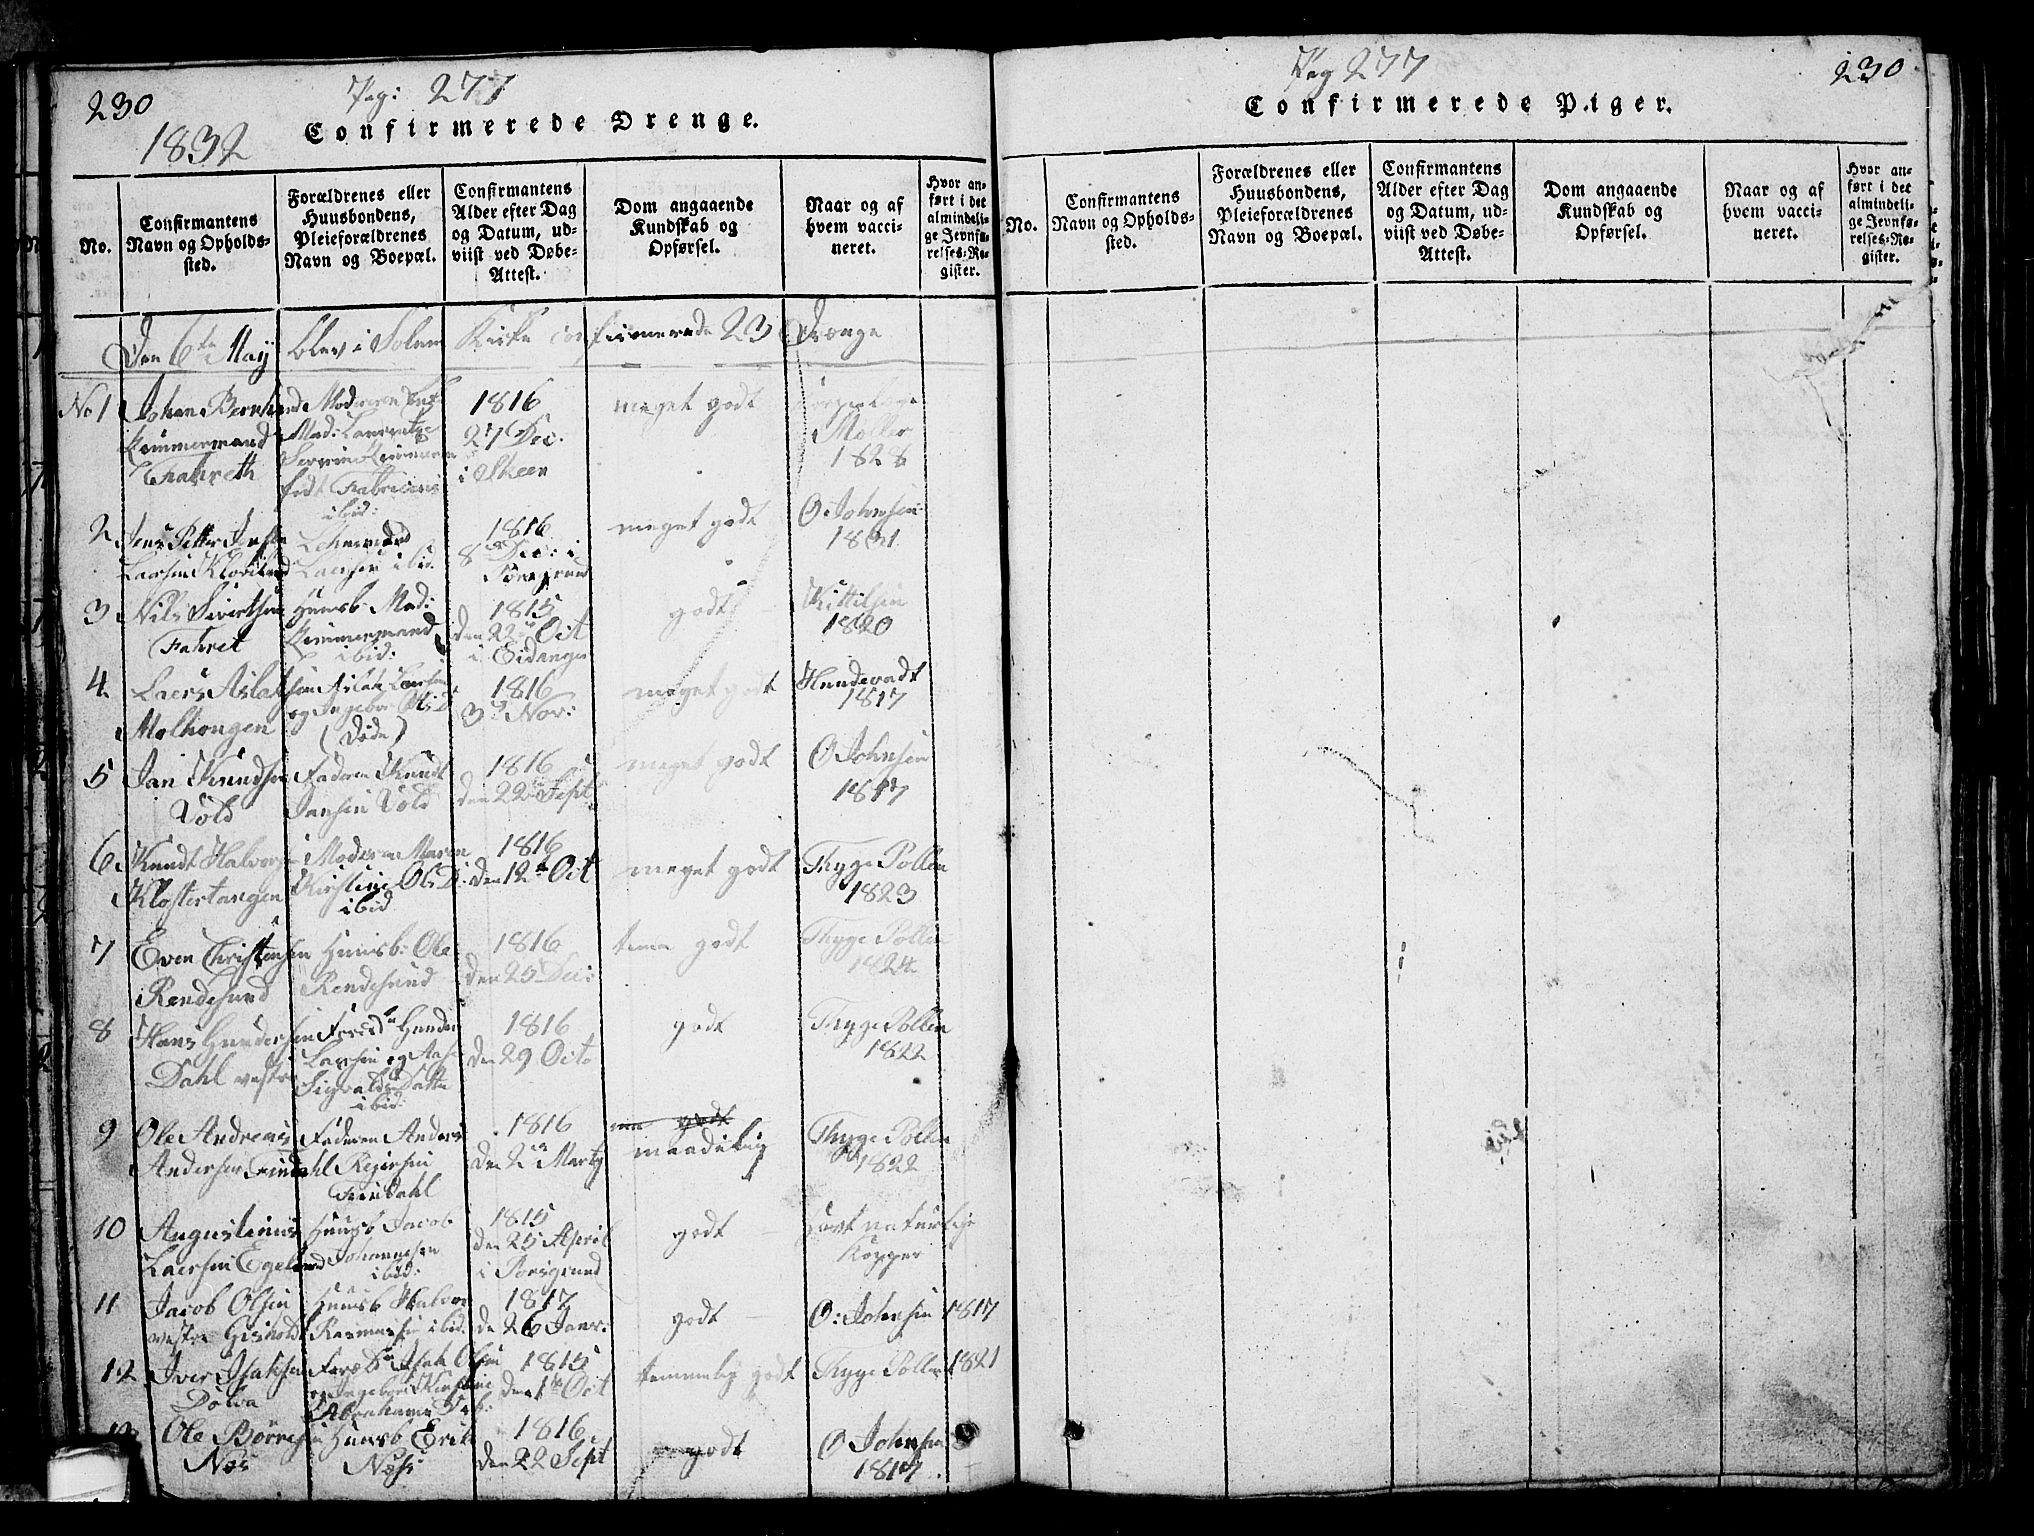 230
Pag: 277
1832
Confirmerede Drenge.
No.
Confirmantens Navn og Opholdssted.
Forældrenes eller Huusbondens, Pleieforældrenes Navn og Boepæl.
Confirmantens Alder efter Dag og Datum, udviist ved Døbe-Attest.
Dom angaaende Kundskab og Opførsel.
Naar og af hvem vaccineret.
Hvor anført i det almindelige Jevnførelses-Register.
Den 6te May blev i Solum Kirke confirmerede 23 Drenge
No 1 Johan Bernhard Moderen
Mad: 1816 27 Dec: i Skeen
meget godt
Møller 1828
Fahreth
født Fabricius ibid:
2 Jens Petter
Laersen ibid.
1816 8de Dec: i
meget godt
O Johnsen 1831
3 Nils Sivertsen
Fahret
Huusb: Mad:
ibid:
1815
den 22de Oct
i Eidanger
godt
Kittilsen
1820
4 Laers Aslaksen
Aslak Laersen
og Ingebor Ols D
(Døde)
1816
3de Nov:
meget godt
Hundevadt
1817
5 Jan Knudsen
Vold
Faderen Knudt
Jansen Vold
1816
den 22de Sept
meget godt
O Johnsen
1817
6 Knudt Halvorsen
Klostertangen
Moderen Maren
Kirstine Ols D:
ibid
1816
den 12te Oct
meget godt
Thyge Pollen
1823
7 Even Christensen
Rendesund
Huusb: Ole
Rendesund
1816
den 25 Dec:
temm godt
Thyge Pollen
1824
8 Hans Gundersen
Dahl vestre
Laersen og
Sigvalds Datter
ibid:
1816
den 29 Octo
godt
Thyge Pollen
1822
9 Ole Andreas
Andersen
Faderen Anders
1816
den 2de Marty
godt
maadelig
Thyge Pollen
1822
10 Augustinus
Laersen Egelund
Huusb Jacob
Johannesen
ibid:
1815
den 25 April
i Porsgrund
godt
Havt naturlige
Kopper
11 Jacob Olsen
vestre Gisholt
Huusb Halvor
Rasmusen ibid.
1817
de 26 Janr:
godt
O: Johnsen 1817
12 Iver Isaksen
Dolva
Isak Olsen
og Ingebor Kirstine
Abrahams
1815
den 1te Oct
temmelig godt
Thyge Pollen 1821
13 Ole Børresen
Næs
Huusb Erik
Næss
1816
den 22 Sept
godt
O Johnsen
1817
Pag 277
230
Confirmerede Piger.
No.
Confirmantens Navn og Opholdssted.
Forældrenes eller Huusbondens, Pleieforældrenes Navn og Boepæl.
Confirmantens Alder efter Dag og Datum, udviist ved Døbe-Attest.
Dom angaaende Kundskab og Opførsel.
Naar og af hvem vaccineret.
Hvor anført i det almindelige Jevnførelses-Register.